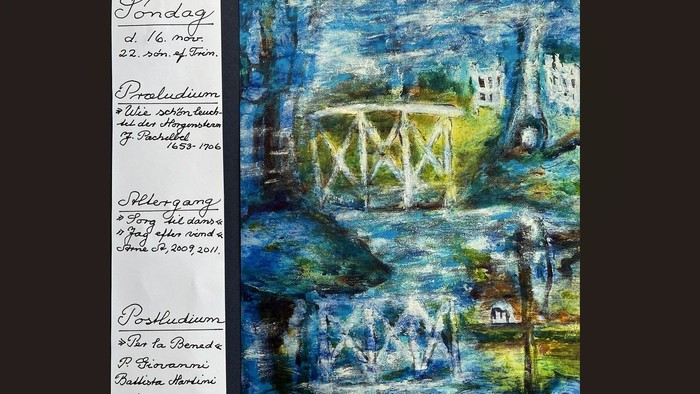 Søndag
d. 16. nov.
22. søn. ef. Trin.
Præludium
"Wie schön leuch-
tet der Morgenstern
J. Pachelbel
1653-1706
Altergang
"Sorg til dans"
"Jag efter vind"
Arne A, 2009, 2011.
Postludium
"Per la Bened"
P. Giovanni
Battista Martini